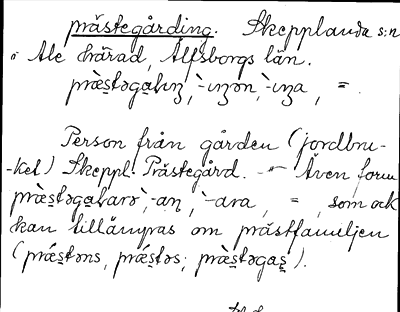 prästegårding. Skepplanda s:n
i Ale härad, Älfsborgs län.
præ̀s̠təga̠lɩŋ, `-ɩŋən, `-ɩŋa, =.
Person från gården (jordbru-
-ket) Skeppl. Prästegård. — Även form
præ̀s̠təga̠larə, `-aṇ, `-ara, =, som ock
kan tillämpas om prästfamiljen
(prǽs̠təns, prǽs̠təs; præ̀s̠təgas̠).